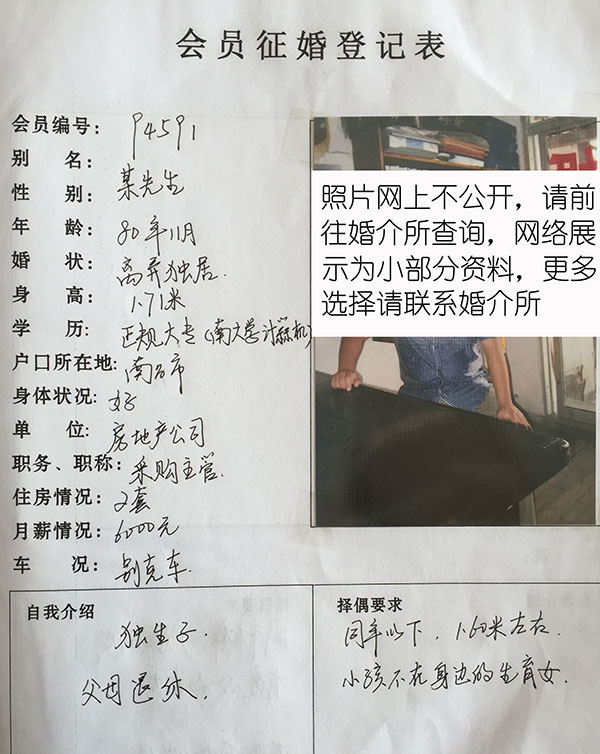 会员征婚登记表
会员编号: P4591
别 名: 某先生
性 别:
年 龄: 80年11月
婚 状: 离异独居.
身 高: 1.71米
学 历: 正规大专(南大学计算机)
户口所在地: 南昌市
身体状况: 好
单 位: 房地产公司
职务、职称: 采购主管.
住房情况: 2套
月薪情况: 6000元
车 况: 别克车.
照片网上不公开，请前
往婚介所查询，网络展
示为小部分资料，更多
选择请联系婚介所
自我介绍
独生子.
父母退休.
择偶要求
同年以下. 1.60米左右.
小孩不在身边的生育女.